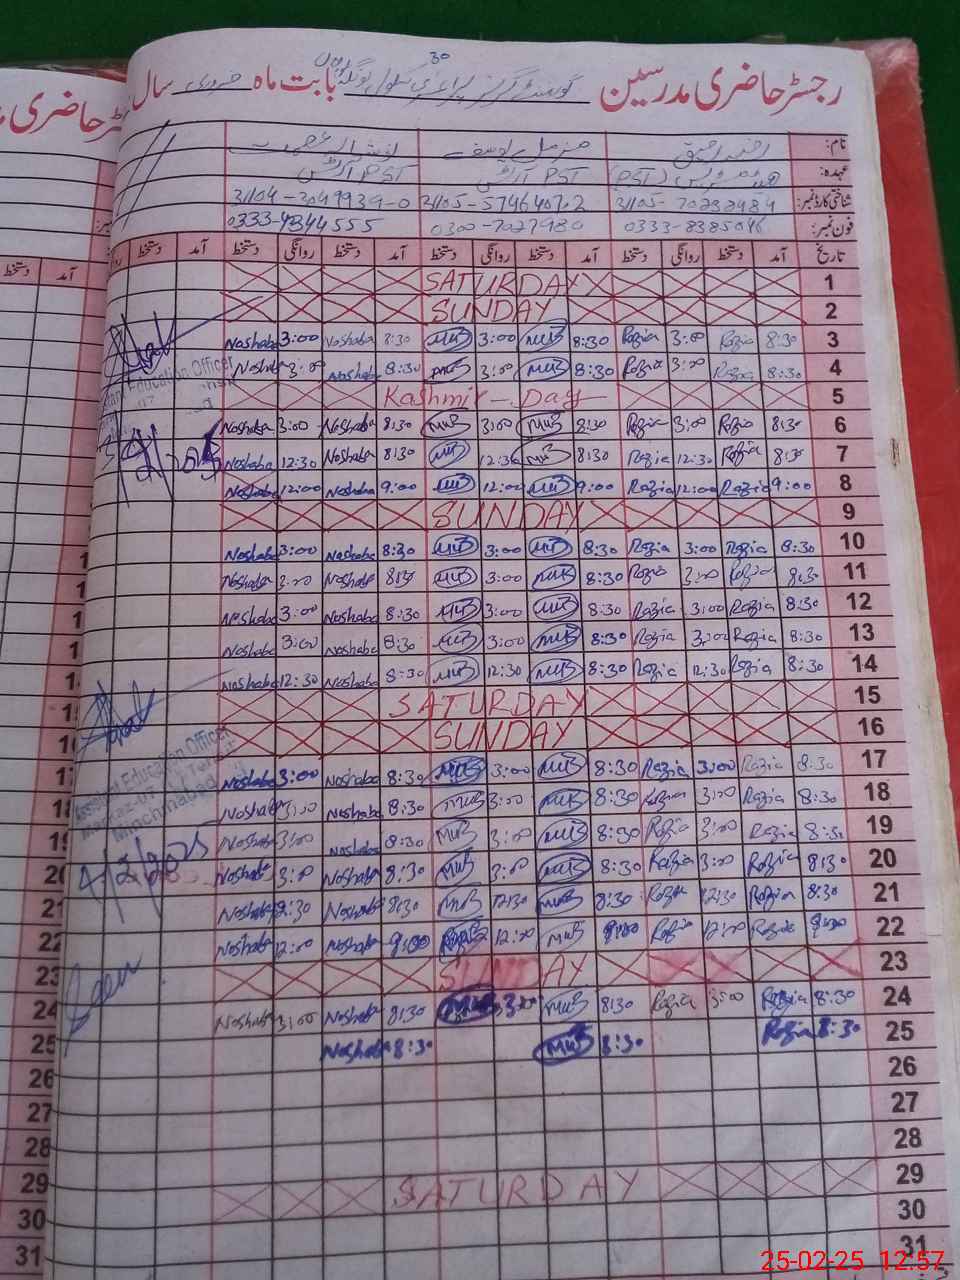 رجسٹر حاضری مدرسین گورنمنٹ گرلز پرائمری سکول بابت ماہ فروری سال
نام:
عہدہ: PST آرٹس PST (PST)
شناختی کارڈ نمبر: 31104-3049939-0
فون نمبر: 0333-8385046 0300-7027980 0333-4344555
تاریخ آمد دستخط روانگی دستخط آمد دستخط روانگی دستخط آمد دستخط روانگی دستخط آمد دستخط
SATURDAY 1
SUNDAY 2
Noshaba 3:00 Noshaba 8:30 MUB 3:00 MUB 8:30 Razia 3:00 Razia 8:30 3
Noshaba 3:00 Noshaba 8:30 3:00 MUB 8:30 Razia 3:00 Razia 8:30 4
Kashmir - Day 5
Noshaba 3:00 Noshaba 8:30 MUB 3:00 MUB 8:30 Razia 3:00 Razia 8:30 6
Noshaba 12:30 Noshaba 8:30 MUB 12:30 MUB 8:30 Razia 12:30 Razia 8:30 7
Noshaba 12:00 Noshaba 9:00 MUB 12:00 MUB 9:00 Razia 12:00 Razia 9:00 8
SUNDAY 9
Noshaba 3:00 Noshaba 8:30 MUB 3:00 MUB 8:30 Razia 3:00 Razia 8:30 10
Noshaba 3:00 Noshaba 8:30 MUB 3:00 MUB 8:30 Razia 3:00 Razia 8:30 11
Noshaba 3:00 Noshaba 8:30 MUB 3:00 MUB 8:30 Razia 3:00 Razia 8:30 12
Noshaba 3:00 Noshaba 8:30 MUB 3:00 MUB 8:30 Razia 3:00 Razia 8:30 13
Noshaba 12:30 Noshaba 8:30 MUB 12:30 MUB 8:30 Razia 12:30 Razia 8:30 14
SATURDAY 15
SUNDAY 16
Noshaba 3:00 Noshaba 8:30 MUB 3:00 MUB 8:30 Razia 3:00 Razia 8:30 17
Noshaba 3:00 Noshaba 8:30 MUB 3:00 MUB 8:30 Razia 3:00 Razia 8:30 18
Noshaba 3:00 Noshaba 8:30 MUB 3:00 MUB 8:30 Razia 3:00 Razia 8:30 19
Noshaba 3:00 Noshaba 8:30 MUB 3:00 MUB 8:30 Razia 3:00 Razia 8:30 20
Noshaba 12:30 Noshaba 8:30 MUB 12:30 MUB 8:30 Razia 12:30 Razia 8:30 21
Noshaba 12:00 Noshaba 9:00 12:00 MUB 9:00 Razia 12:00 Razia 9:00 22
SUNDAY 23
Noshaba 3:00 Noshaba 8:30 MUB 3:00 MUB 8:30 Razia 3:00 Razia 8:30 24
Noshaba 8:30 MUB 8:30 Razia 8:30 25
26
27
28
SATURDAY 29
30
31
Education Officer
Assistant Education Officer
Markaz
Minchinabad
25-02-25 12:57